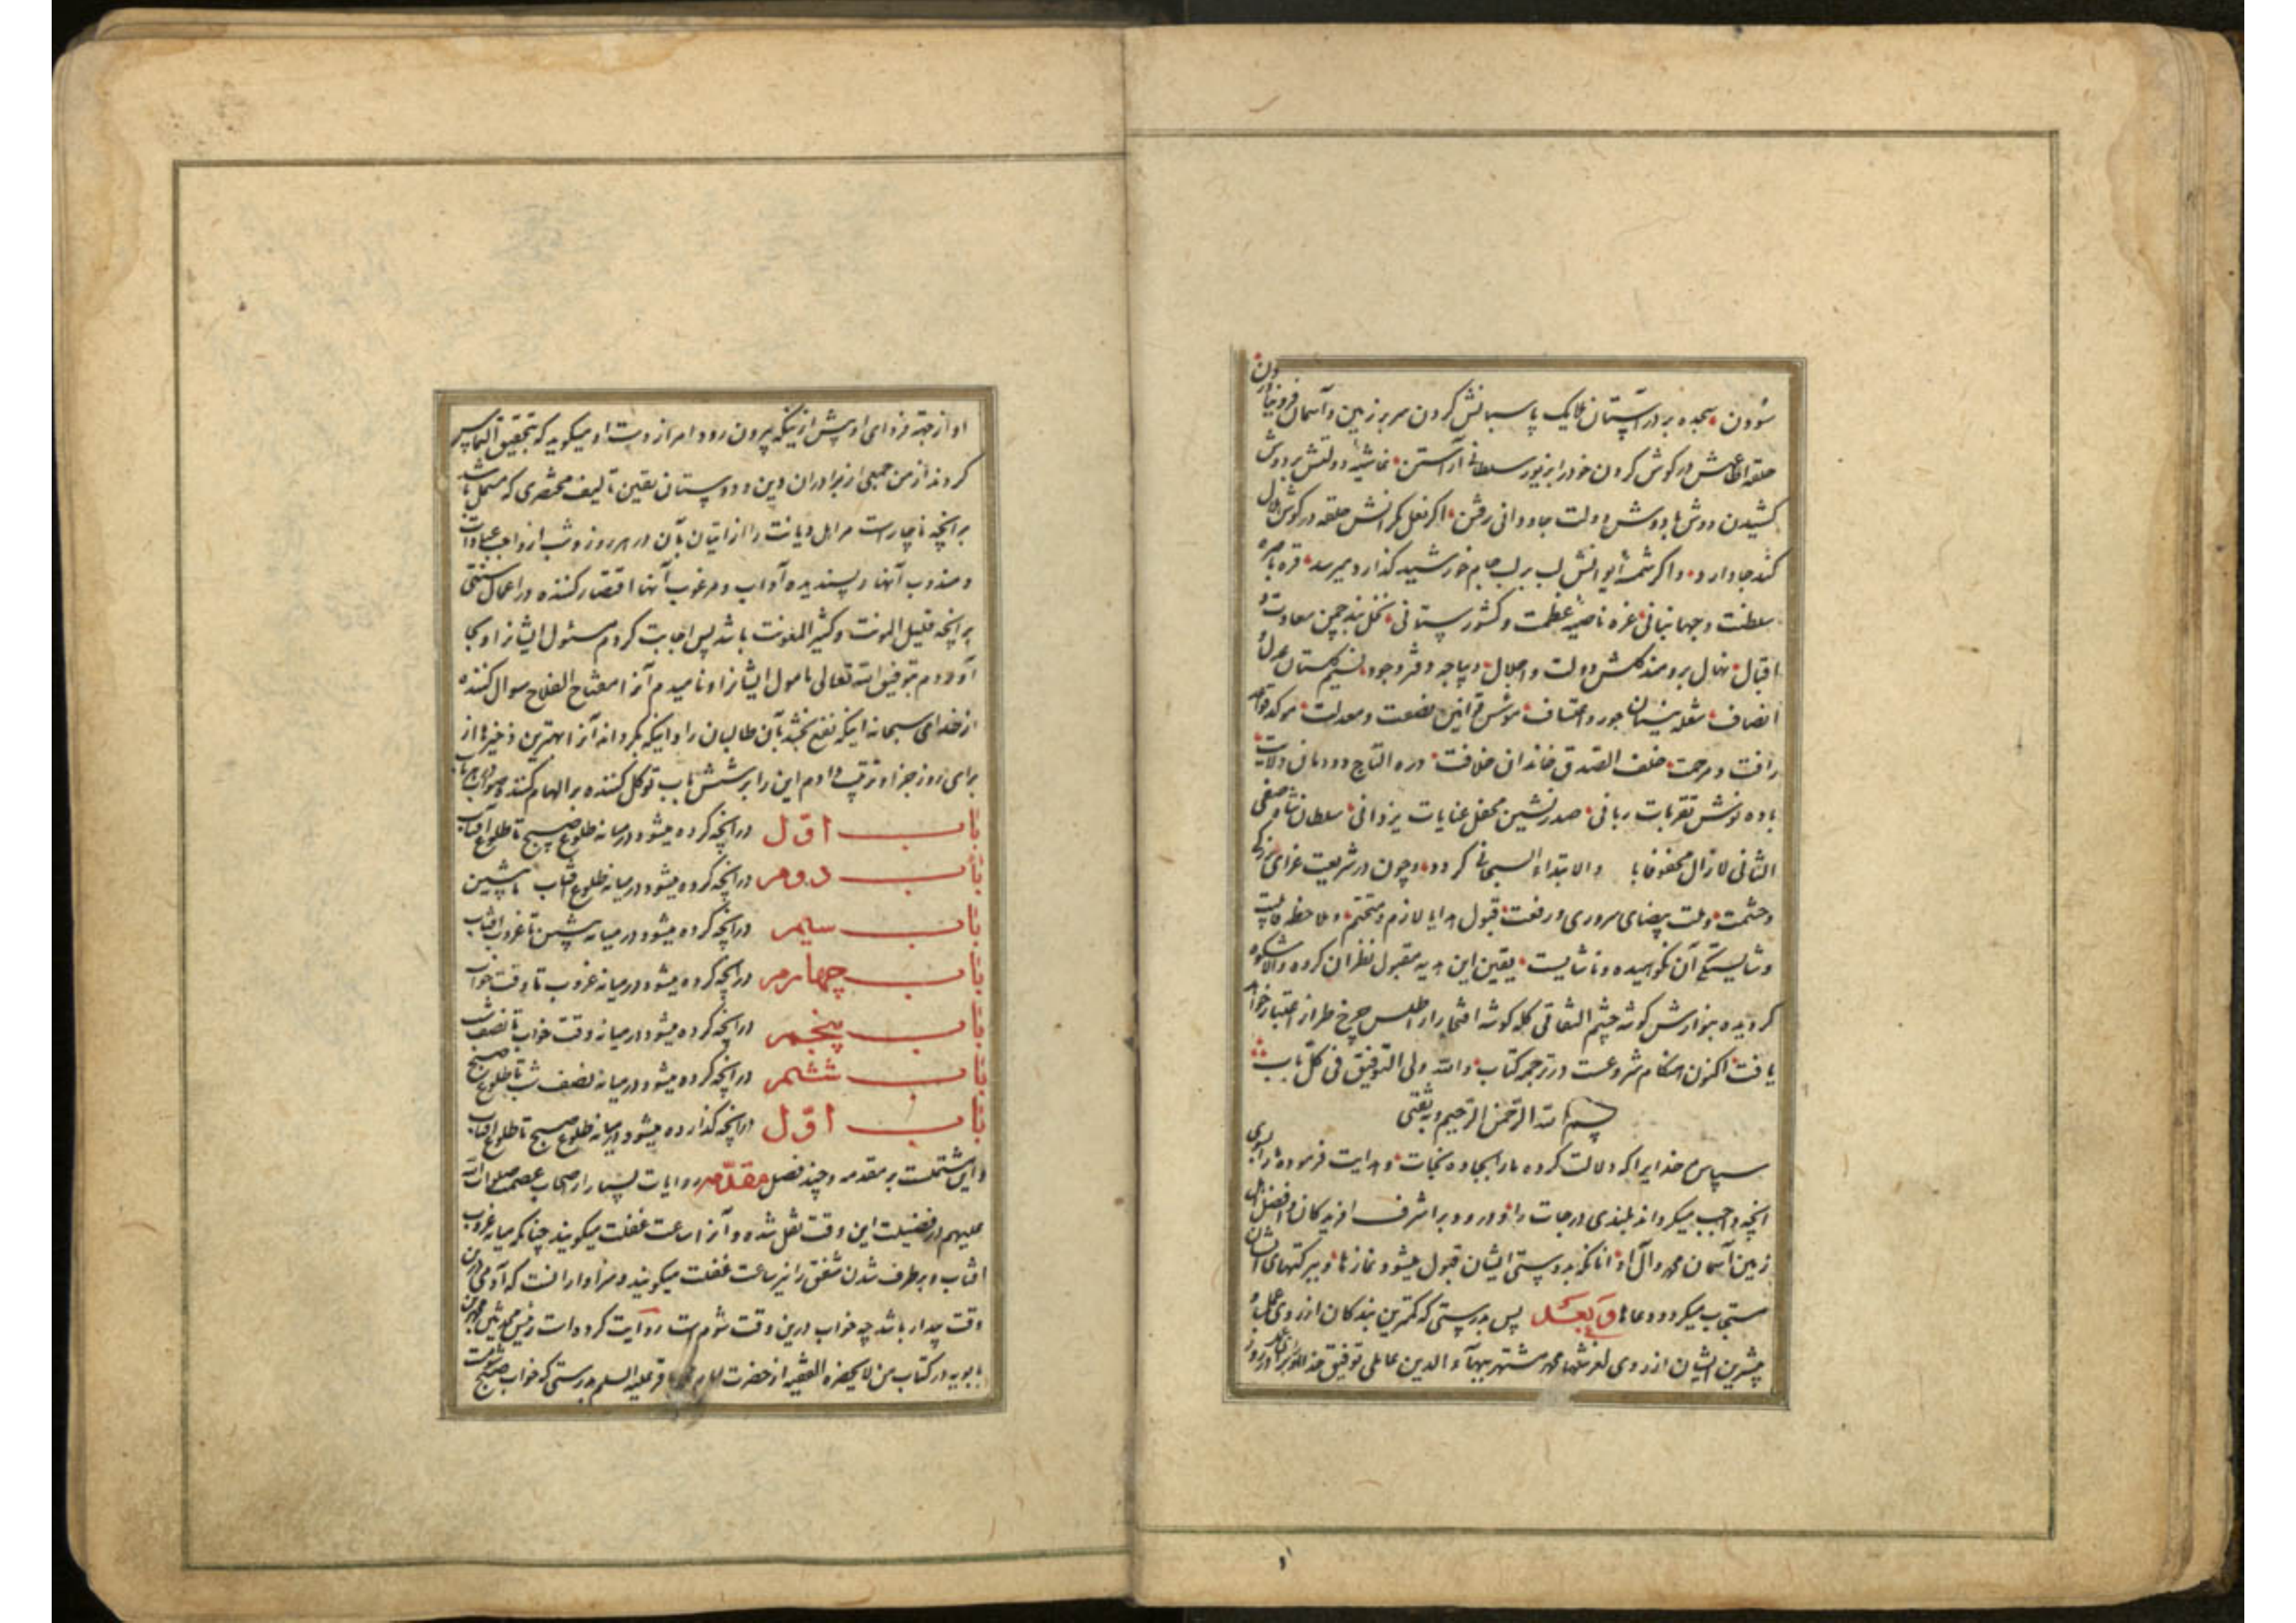 سودن سجده بر در آستان ملایک پاسبانش کردن سر بر زمین و آسمان فرو نیاوردن
حلقه اطاعتش در گوش کردن خود را بزیور سلطانی آراستن غاشیه دولتش بر دوش
کشیدن دوش با دوش دولت جاودانی رفتن اگر نعل یکرانش حلقه در گوش
کند جا دارد و اگر شمسه ایوانش لب بر لب جام خورشید گذارد میرسد قره باصره
سلطنت و جهانبانی غره ناصیه عظمت و کشورستانی نخل بند چمن سعادت و
اقبال نهال برومند گلشن دولت و اجلال دیباجه دفتر وجود نسیم گلستان عدل و
انصاف شعله نیستان جور و اعتساف موسس قوانین نصفت و معدلت موکد قواعد
رافت و مرحمت خلف الصدق خاندان خلافت دره التاج دودمان ولایت
باده نوش تقربات ربانی صدرنشین محفل عنایات یزدانی سلطان شاه صفی
الثانی لا زال محفوفا با والابتداء السبحانی کردد و چون در شریعت غرای بزرگی
و حشمت و ملت بیضای سروری و رفعت قبول هدایا لازم و متحتم و ملاحظه قابلیت
و شایستگی آن نکوهیده و ناشایست یقین این هدیه مقبول نظر آن والاشکوه
گردیده بنوازش گوشه چشم التفاتی کله گوشه افتخار از اطلس چرخ طراز اعتبار خواهد
یافت اکنون هنگام شروعست در ترجمه کتاب والله ولی التوفیق فی کل باب
بسم الله الرحمن الرحیم وبه ثقتی
سپاس خدایرا که دلالت کرده ما را بجاده نجات و هدایت فرموده ما را بسوی
انچه واجب میگرداند بلندی درجات را و درود بر اشرف افریدگان و افضل اهل
زمین آسمان محمد و آل او انانکه بدوستی ایشان قبول میشود نمازها و ببرکتهای ایشان
مستجاب میگردد دعاها و بعد پس بدرستی که کمترین بندگان از روی عمل و
بیشترین ایشان از روی لغزشها محمد مشتهر ببهآء الدین عاملی توفیق
او از جهة فردای او پیش ازینکه بیرون رود امر از دست او میگوید که بتحقیق التماس
کردند از من جمعی از برادران دین و دوستان یقین تالیف مختصری که مشتمل باشد
بر انچه ناچار است مر اهل دیانت را از اتیان بآن در هر روز و شب از واجب عبادات
و مندوب آنها و پسندیده آداب و مرغوب آنها اقتصار کننده در اعمال سنتی
بر انچه قلیل المونت و کثیر المعونت باشد پس اجابت کردم مسئول ایشانرا و بجا
آوردم بتوفیق الله تعالی مامول ایشانرا و نامیدم آنرا مفتاح الفلاح سوال کننده
از خدای سبحانه اینکه نفع بخشد بآن طالبان را و اینکه بگرداند آنرا بهترین ذخیرها از
برای روز جزا و ترتیب دادم این را بر شش باب توکل کننده بر الهام کننده صواب در هر باب
باب اوّل در انچه کرده میشود در میانه طلوع صبح تا طلوع افتاب
باب دومر در انچه کرده میشود در میانه طلوع افتاب تا پشین
باب سیمر در انچه کرده میشود در میانه پشین تا غروب افتاب
باب چهارمر در انچه کرده میشود در میانه غروب تا وقت خواب
باب پنجمر در انچه کرده میشود در میانه وقت خواب تا نصف شب
باب ششمر در انچه کرده میشود در میانه نصف شب تا طلوع صبح
باب اوّل در انچه گذارده میشود در میانه طلوع صبح تا طلوع افتاب
و این مشتملست بر مقدمه و چند فصل مقدّمه روایات بسیار از اصحاب عصمت صلوات الله
علیهم در فضیلت این وقت نقل شده و آنرا ساعت غفلت میگویند چنانکه میانه غروب
افتاب و برطرف شدن شفق را نیز ساعت غفلت میگویند و سزاوار انست که آدمی درین
وقت بیدار باشد چه خواب درین وقت شوم است روایت کرده است رئیس محدثین محمد بن
بابویه در کتاب من لا یحضره الفقیه از حضرت امام محمد باقر علیه السلم بدرستی که خواب صبح شومست